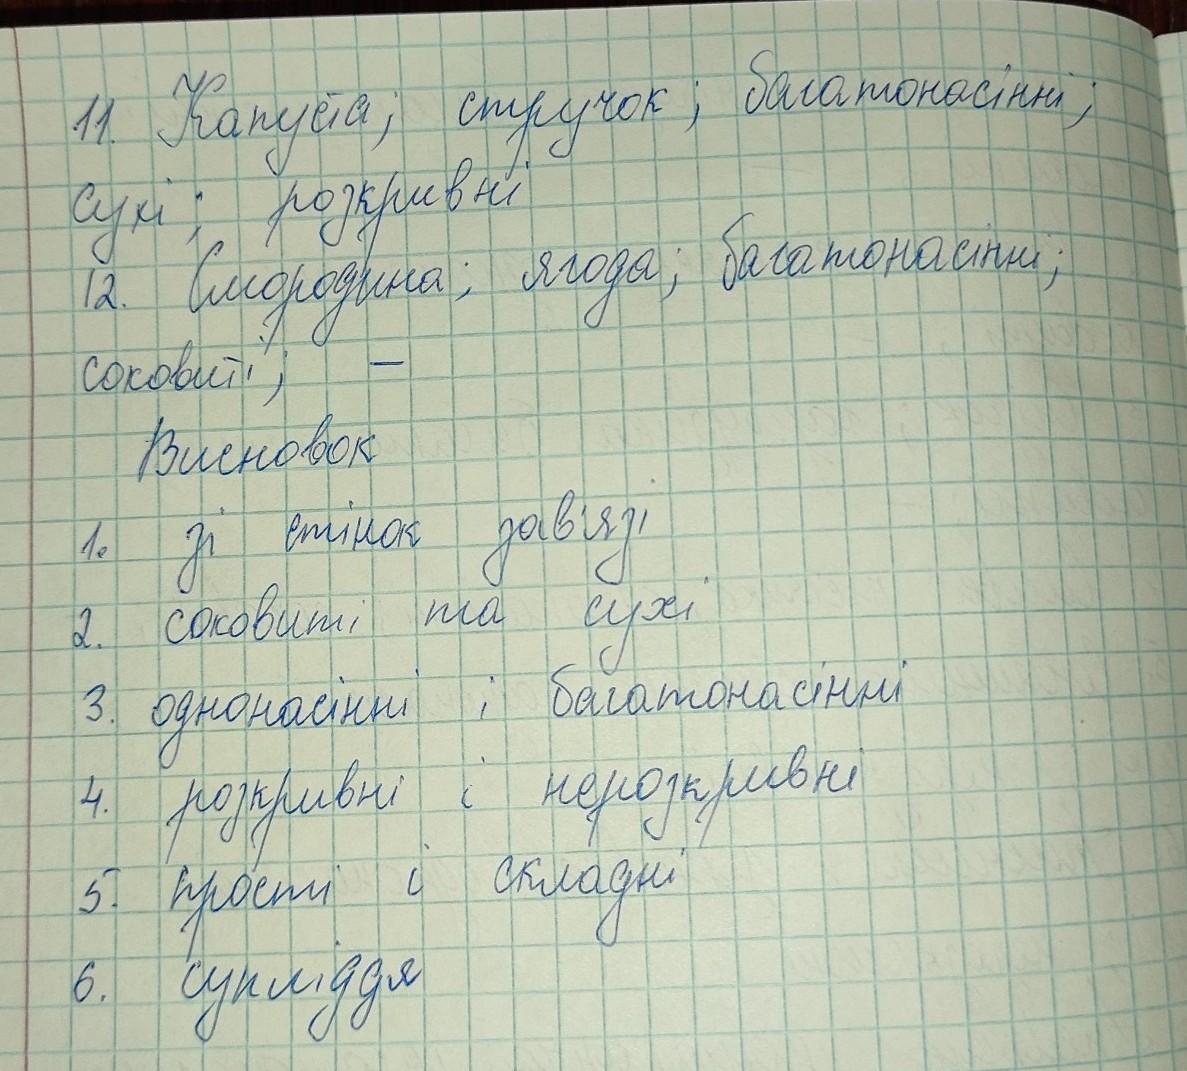 11. Капуста; стручок; багатонасінні;
сухі; розкривні
12. Смородина; ягода; багатонасінні;
соковиті; –
Висновок
1. зі стінок зав'язі
2. соковиті та сухі
3. однонасінні і багатонасінні
4. розкривні і нерозкривні
5. прості і складні
6. супліддя